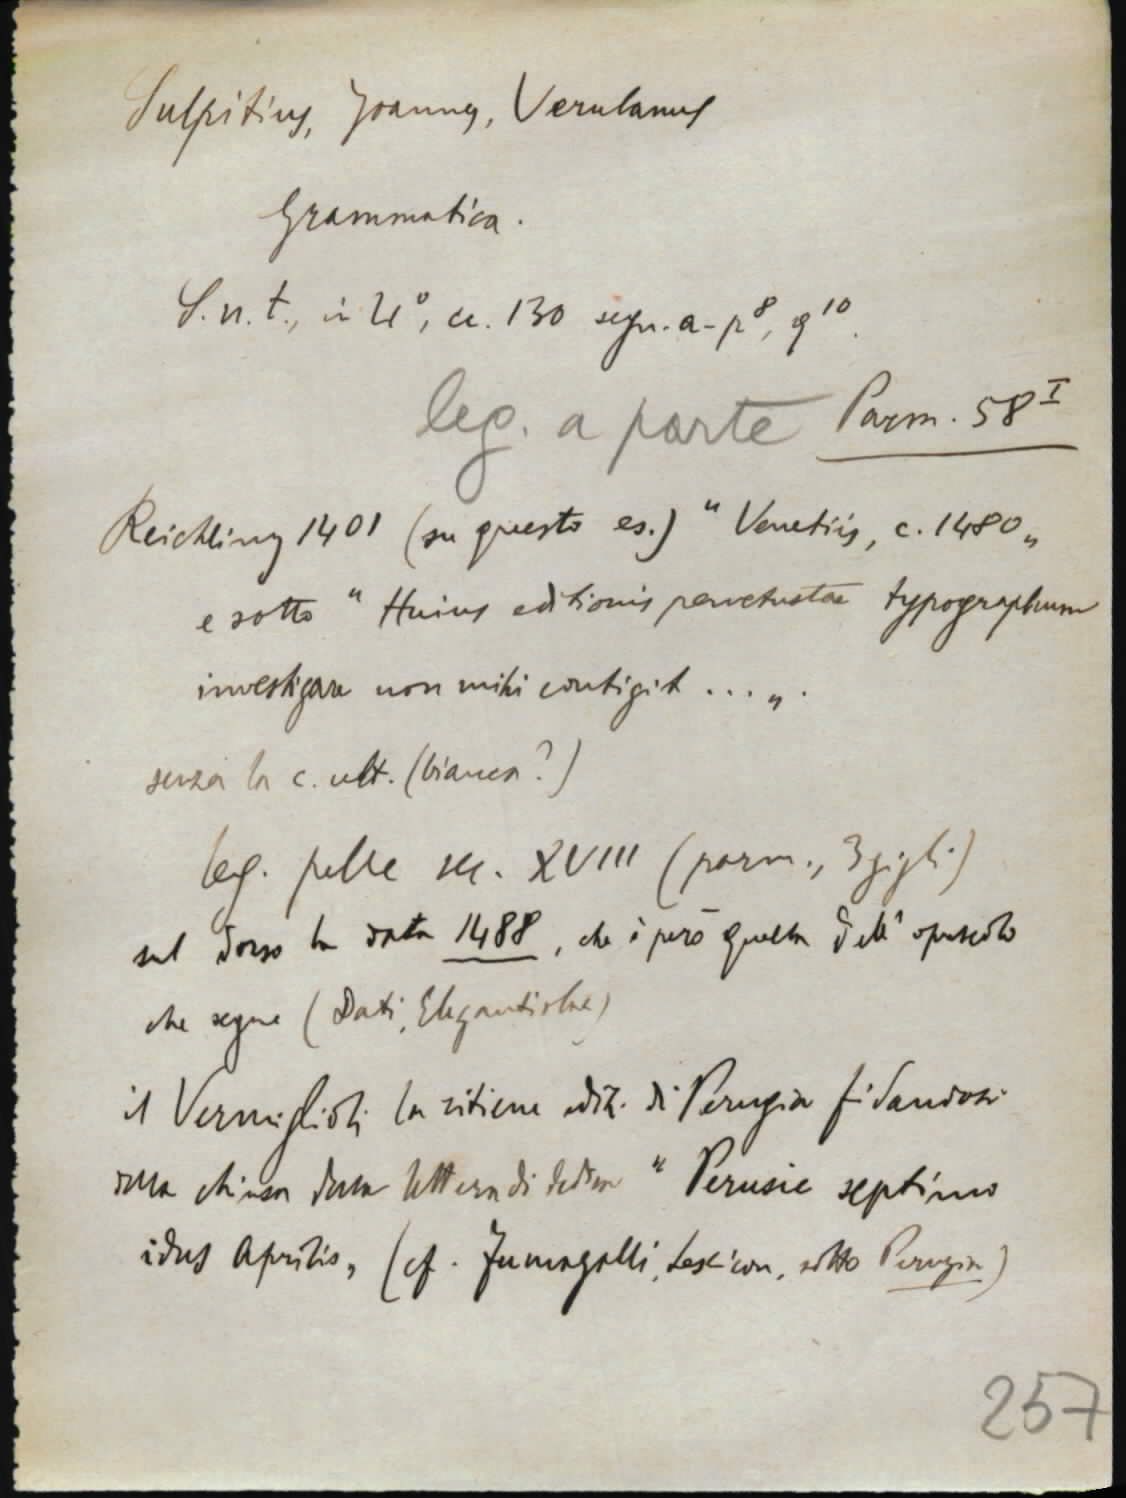 Sulpitius, Joannes, Verulanus
Grammatica.
S.n.t., in 4°, cc. 130 segn. a-p⁸, q¹⁰.
leg. a parte Parm. 58ᴵ
Reichling 1401 (su questo es.) " Venetiis, c. 1480 „
e sotto " Huius editionis pervetustae typographum
investigare non mihi contigit ... „.
senza la c. ult. (bianca?)
leg. pelle sec. XVIII (parm., 3 gigli)
sul dorso la data 1488, che è però quella dell'opuscolo
che segue (Dati, Elegantiolae)
il Vermiglioli la ritiene ediz. di Perugia fidandosi
della chiusa della lettera di dedica " Perusie septimo
idus Aprilis „ (cf. Fumagalli, Lexicon, sotto Perugia)
257